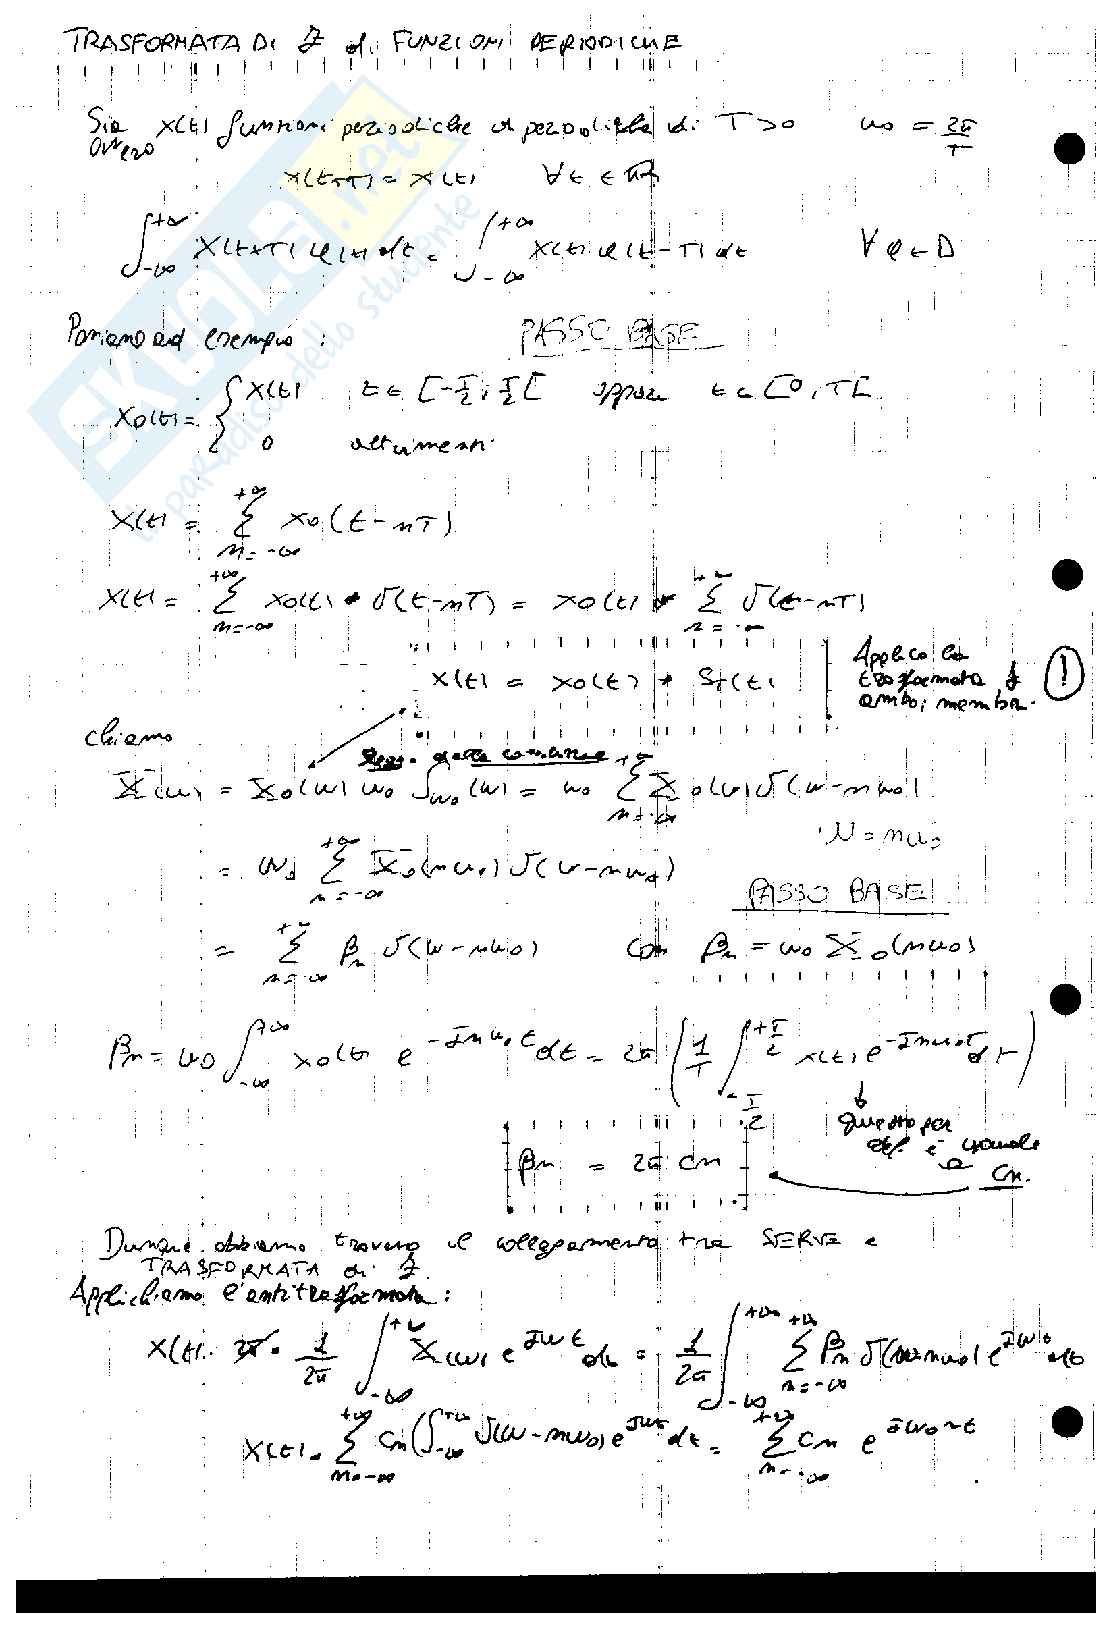 TRASFORMATA DI F di FUNZIONI PERIODICHE
Sia x(t) funzioni periodiche di T>0 ω0 = 2π/T
ovvero
x(t+T) = x(t) ∀t ∈ R
∫_{-∞}^{+∞} x(t+T) φ(t) dt = ∫_{-∞}^{+∞} x(t) φ(t-T) dt ∀φ ∈ D
Poniamo ad esempio : PASSO BASE
x0(t) = { x(t) t ∈ [-T/2, T/2[ oppure t ∈ [0, T[
0 altrimenti
x(t) = Σ_{n=-∞}^{+∞} x0(t-nT)
x(t) = Σ_{n=-∞}^{+∞} x0(t) * δ(t-nT) = x0(t) * Σ_{n=-∞}^{+∞} δ(t-nT)
x(t) = x0(t) * S_T(t)
Applico la
trasformata F
ambo i membri.
!
chiamo
X(ω) = X0(ω) ω0 S_{ω0}(ω) = ω0 Σ_{n=-∞}^{+∞} X0(ω) δ(ω-nω0)
ω = nω0
= ω0 Σ_{n=-∞}^{+∞} X0(nω0) δ(ω-nω0)
PASSO BASE
= Σ_{n=-∞}^{+∞} βn δ(ω-nω0) con βn = ω0 X0(nω0)
βn = ω0 ∫_{-∞}^{+∞} x0(t) e^{-Jnω0t} dt = 2π ( 1/T ∫_{-T/2}^{+T/2} x(t) e^{-Jnω0t} dt )
questo per
def. è uguale
a cn.
βn = 2π cn
Dunque abbiamo trovato il collegamento tra SERIE e
TRASFORMATA di F.
Applichiamo l'antitrasformata :
x(t) = 1/2π ∫_{-∞}^{+∞} X(ω) e^{Jωt} dω = 1/2π ∫_{-∞}^{+∞} Σ_{n=-∞}^{+∞} βn δ(ω-nω0) e^{Jωt} dt
x(t) = Σ_{n=-∞}^{+∞} cn ( ∫_{-∞}^{+∞} δ(ω-nω0) e^{Jωt} dt = Σ_{n=-∞}^{+∞} cn e^{Jω0nt}
SKUOLA.net
il paradiso dello studente